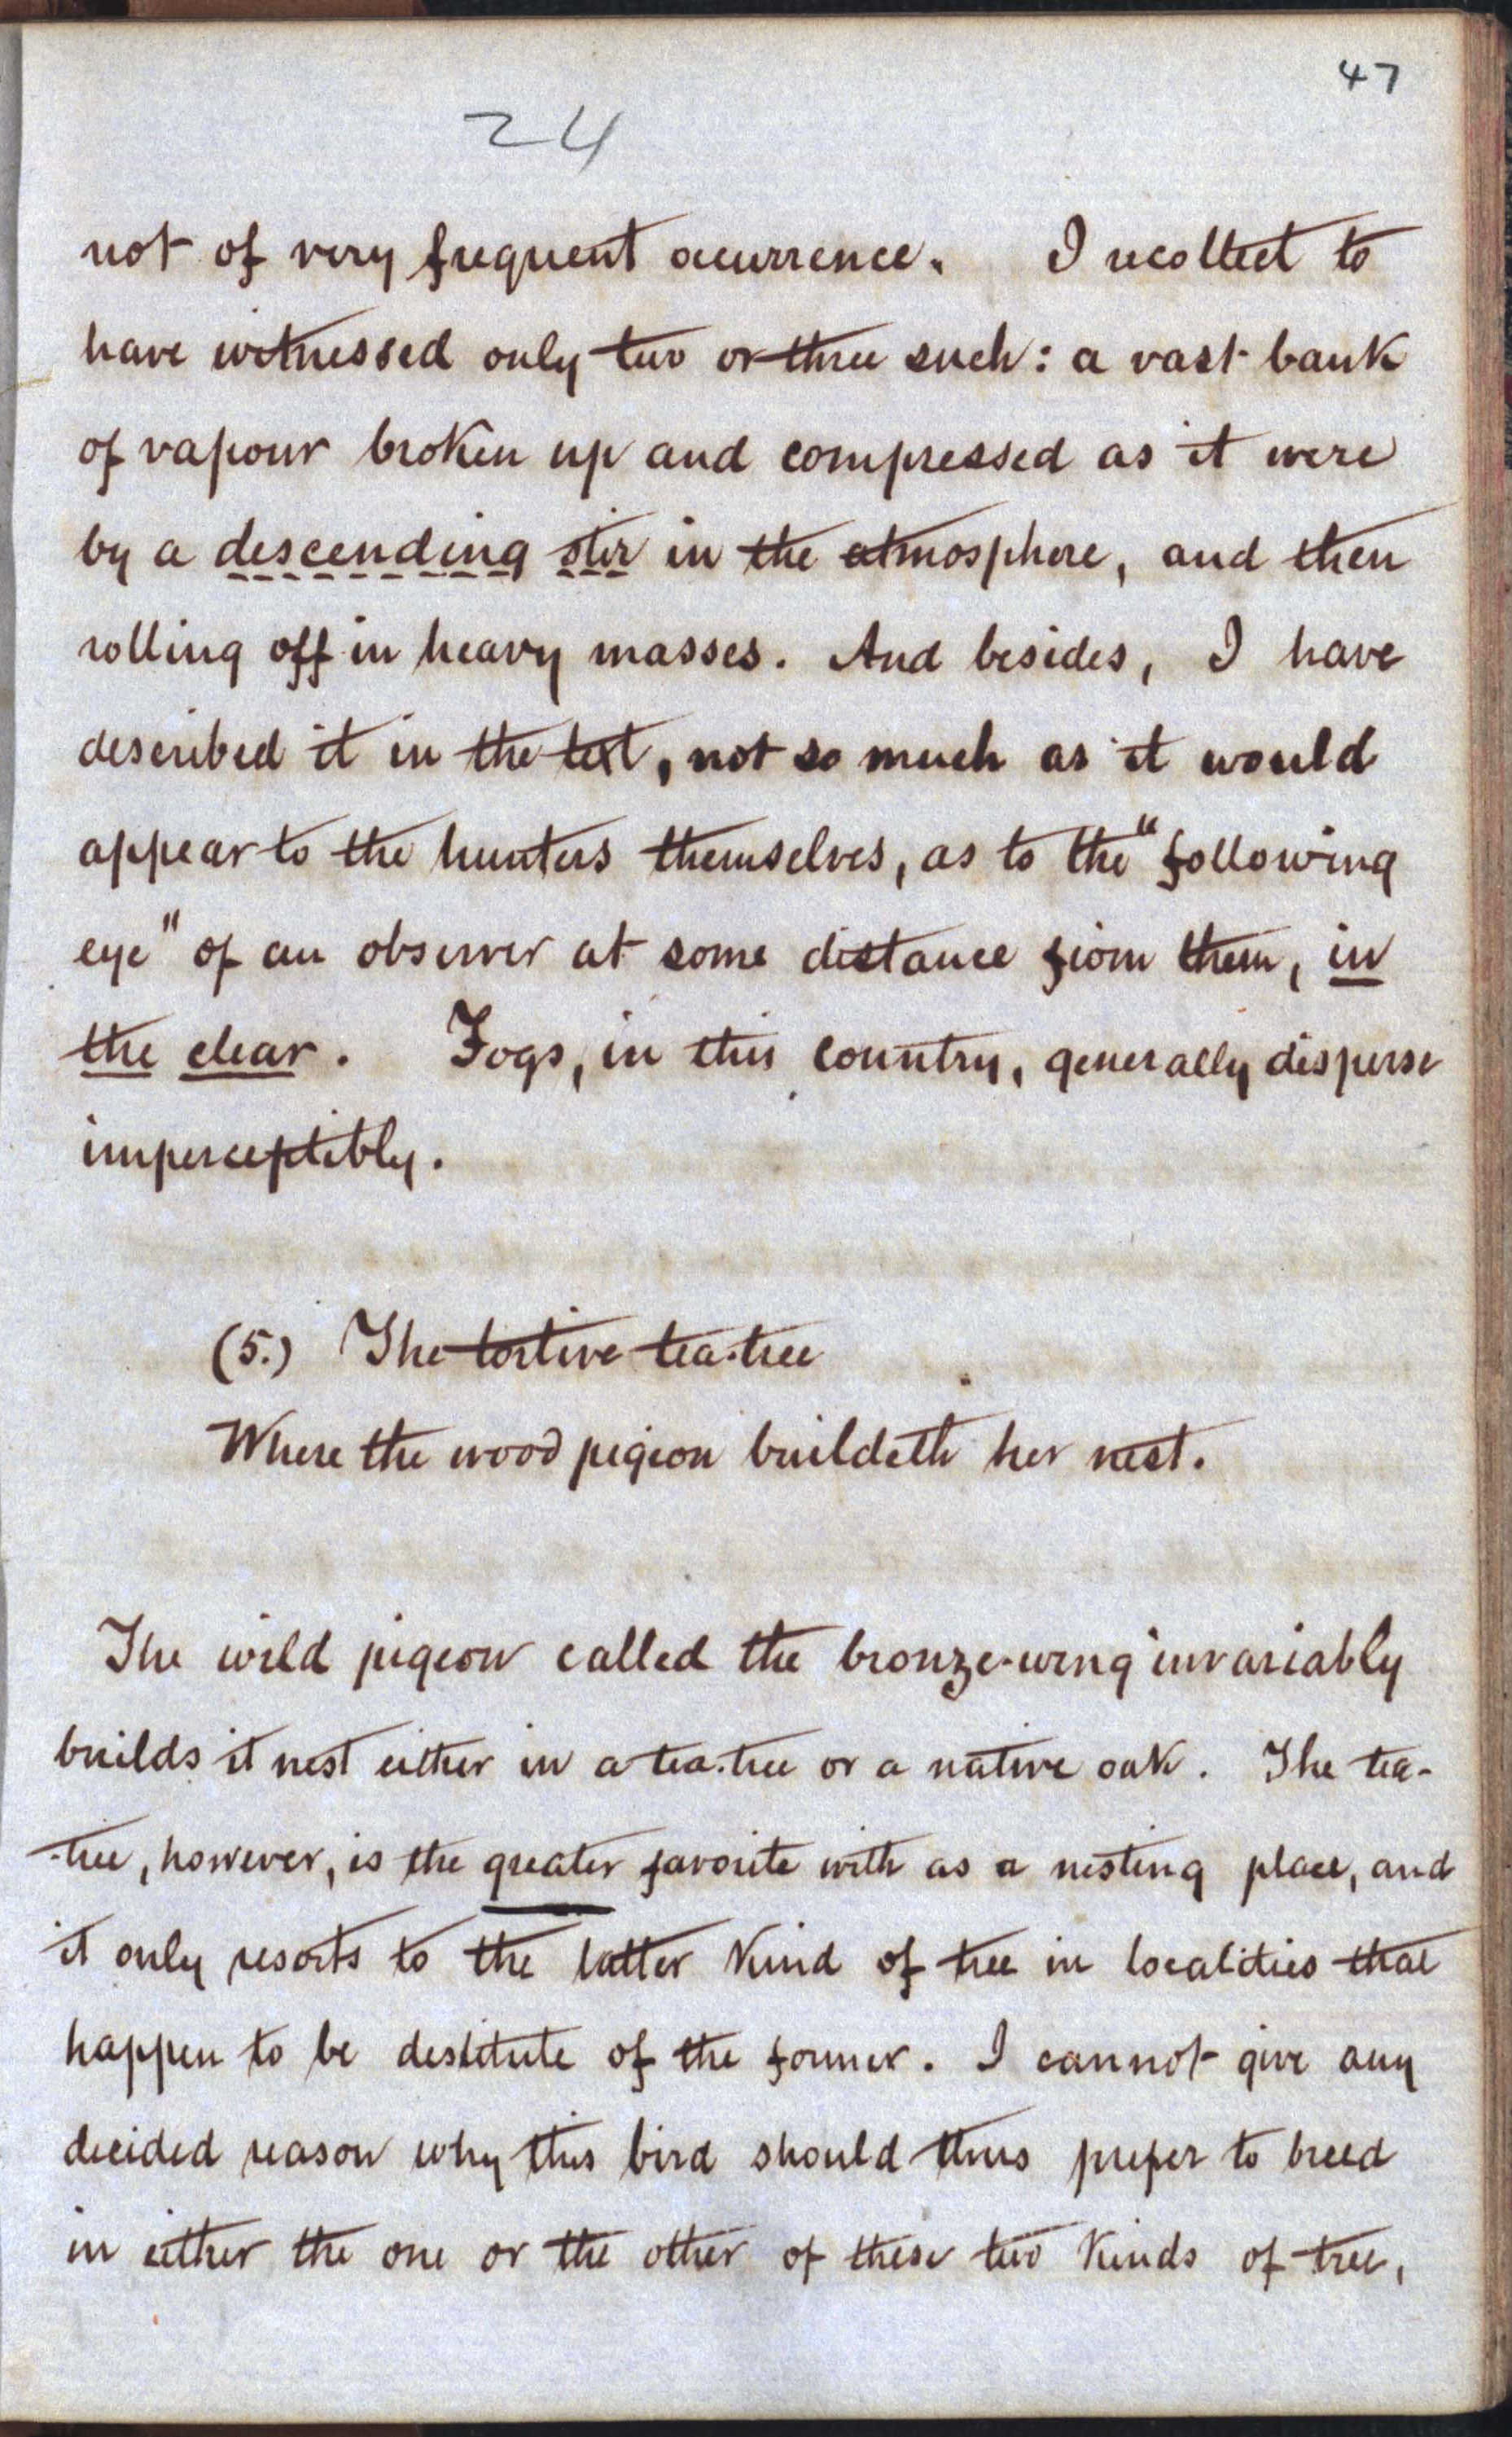 47
24
not of very frequent occurrence. I recollect to
have witnessed only two or three such: a vast bank
of vapour broken up and compressed as it were
by a descending stir in the atmosphere, and then
rolling off in heavy masses. And besides, I have
described it in the text, not so much as it would
appear to the hunters themselves, as to the "following
eye" of an observer at some distance from them, in
the clear. Fogs, in this country, generally disperse
imperceptibly.
(5.) The tortive tea-tree
Where the wood pigeon buildeth her nest.
The wild pigeon called the bronze-wing invariably
builds it nest either in a tea-tree or a native oak. The tea-
-tree, however, is the greater favorite with as a nesting place, and
it only resorts to the latter kind of tree in localities that
happen to be destitute of the former. I cannot give any
decided reason why this bird should thus prefer to breed
in either the one or the other of these two kinds of tree,